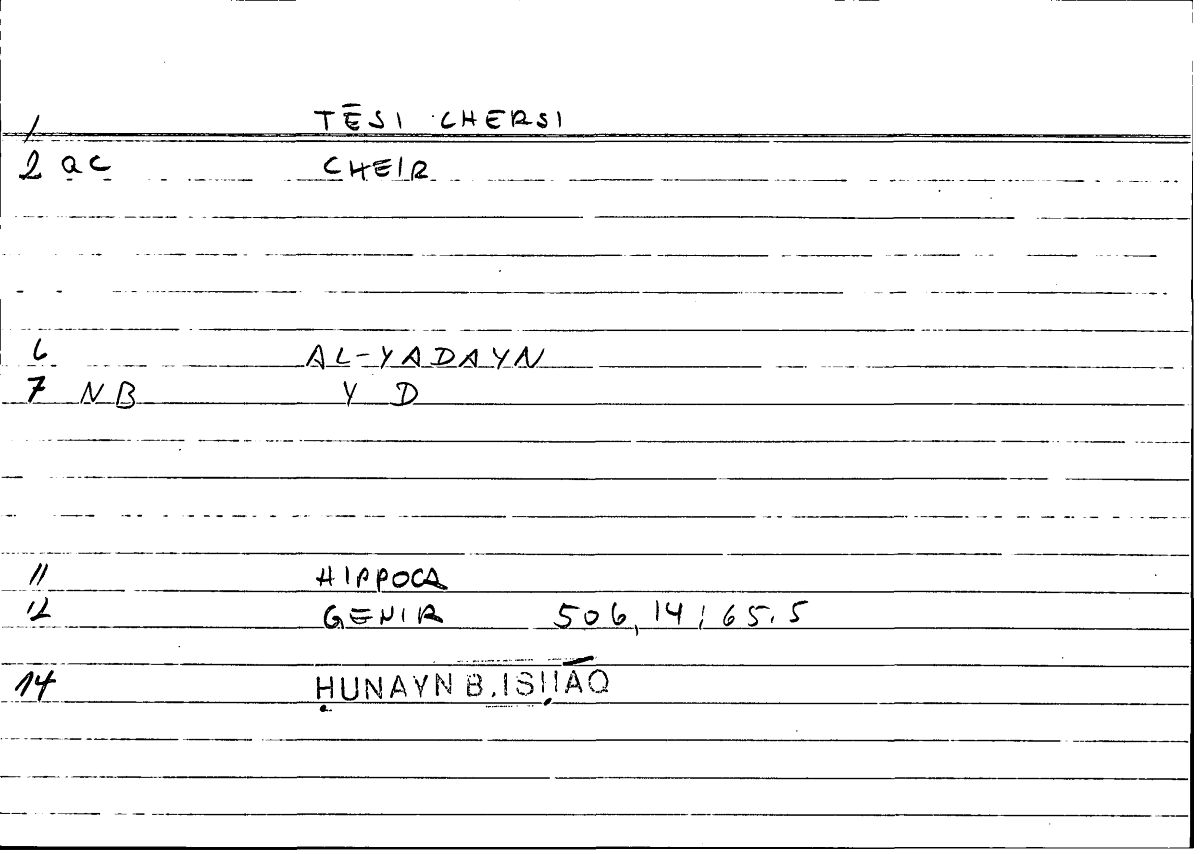 1 TĒSI CHERSI
2 ac CHEIR
6 AL-YADAYN
7 NB Y D
11 HIPPOCR
12 GENIR 506,14; 65.5
14 ḤUNAYN B. ISḤĀQ